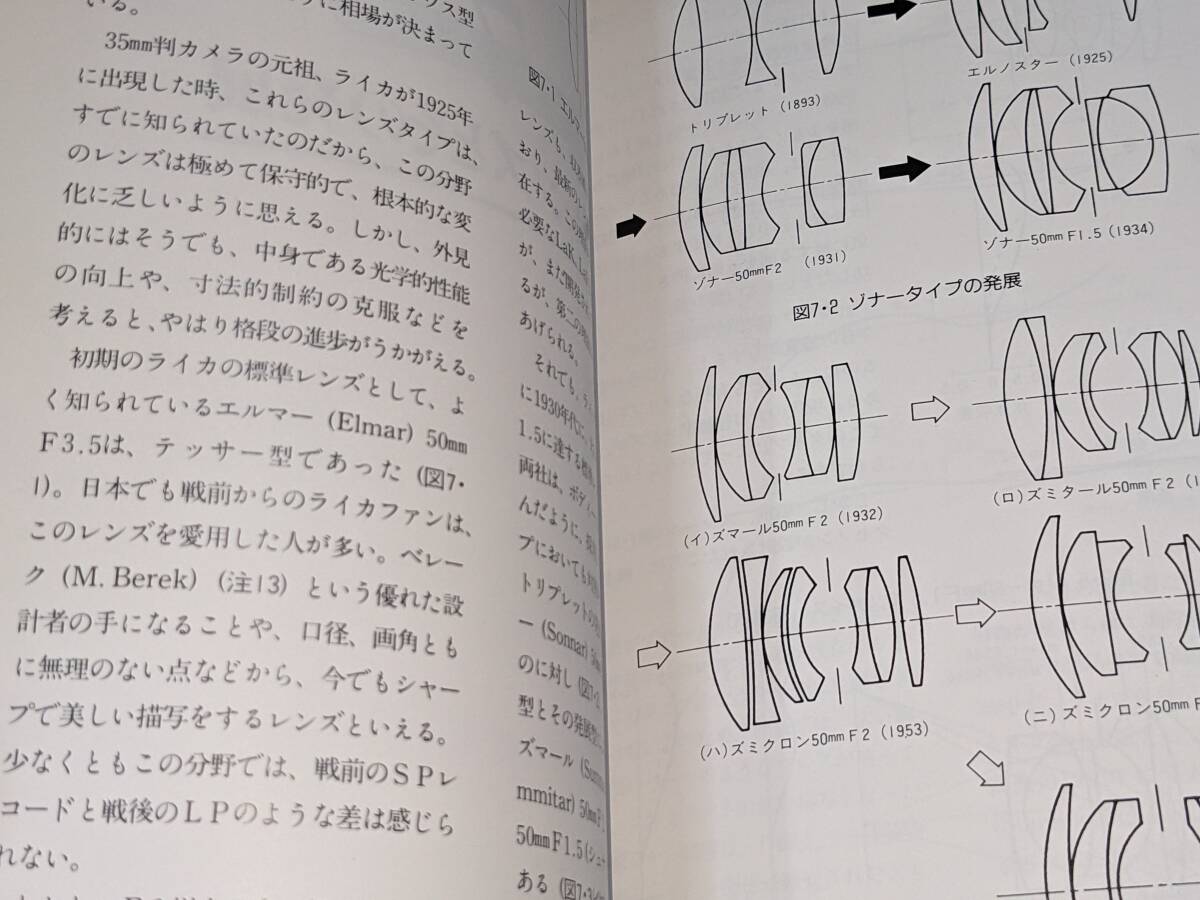 ソス型
に相場が決まって
いる。
35mm判カメラの元祖、ライカが1925年
に出現した時、これらのレンズタイプは、
すでに知られていたのだから、この分野
のレンズは極めて保守的で、根本的な変
化に乏しいように思える。しかし、外見
的にはそうでも、中身である光学的性能
の向上や、寸法的制約の克服などを
考えると、やはり格段の進歩がうかがえる。
初期のライカの標準レンズとして、よ
く知られているエルマー (Elmar) 50mm
F3.5は、テッサー型であった (図7・
1)。日本でも戦前からのライカファンは、
このレンズを愛用した人が多い。ベレー
ク (M. Berek) (注13) という優れた設
計者の手になることや、口径、画角とも
に無理のない点などから、今でもシャー
プで美しい描写をするレンズといえる。
少なくともこの分野では、戦前のSPレ
コードと戦後のLPのような差は感じら
れない。
図7・1 エルマ
レンズも、
おり、最新のレン
在する。この
必要なLaK、La
が、まだ開発
るが、第二の
あげられる。
それでも、ライ
に1930年代に
1.5に達する
両社は、ボディ
んだように、
プにおいても
トリプレットの
ー (Sonnar) 50mm
のに対し (図7・2
型とその発展型
ズマール (Summ
mmitar) 50mmF
50mmF1.5 (シュナ
ある (図7・3
トリプレット (1893)
エルノスター (1925)
ゾナー50mmF2 (1931)
ゾナー50mm F1.5 (1934)
図7・2 ゾナータイプの発展
(イ)ズマール50mm F2 (1932)
(ロ)ズミタール50mm F2 (1
(ハ)ズミクロン50mm F2 (1953)
(ニ)ズミクロン50mm F